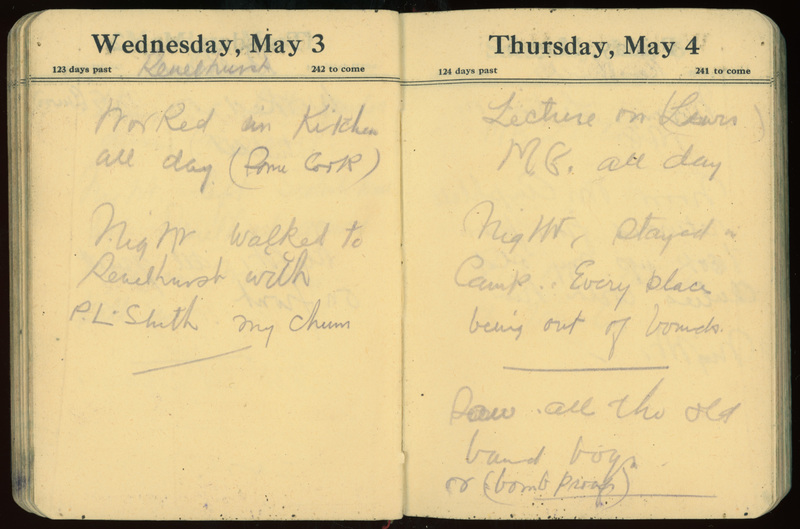 Wednesday, May 3
123 days past 242 to come
Penelhurst
Worked in Kitchen
all day (Some Cook)
Night walked to
Penelhurst with
P.L. Smith my chum
Thursday, May 4
124 days past 241 to come
Lecture on (Lewis)
M.G. all day
Night, stayed in
Camp.. Every place
being out of bounds.
Saw all the old
band boys
or (bomb proofs)